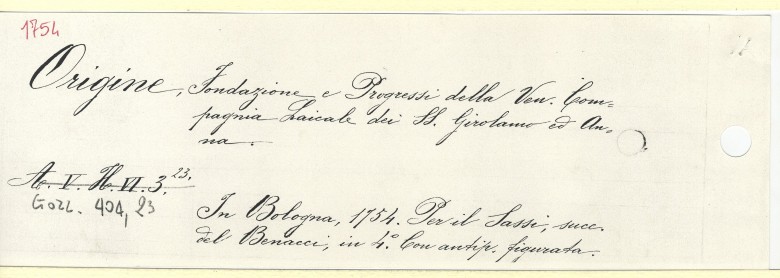 1754
Origine, Fondazione e Progressi della Ven. Com=
pagnia Laicale dei SS. Girolamo ed An=
na.
A. V. H. VI. 3. 23.
Gozz. 404, 23
In Bologna, 1754. Per il Sassi, succ.
del Benacci, in 4.° Con antip. figurata.